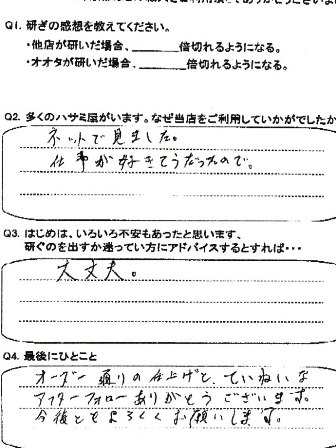 Q1. 研ぎの感想を教えてください。
・他店が研いだ場合、______倍切れるようになる。
・オオタが研いだ場合、______倍切れるようになる。
Q2. 多くのハサミ屋がいます。なぜ当店をご利用していかがでしたか
ネットで見ました。
仕事が好きそうだったので。
Q3. はじめは、いろいろ不安もあったと思います、
研ぐのを出すか迷ってい方にアドバイスするとすれば・・・
大丈夫。
Q4. 最後にひとこと
オーダー通りの仕上げと、ていねいな
アフターフォローありがとうございます。
今後ともよろしくお願いします。